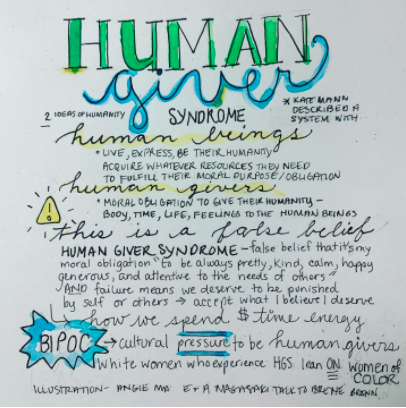 HUMAN
giver
SYNDROME
* KATE MANN
DESCRIBED A
SYSTEM WITH -
2 IDEAS OF HUMANITY
human beings
• LIVE, EXPRESS, BE THEIR HUMANITY
ACQUIRE WHATEVER RESOURCES THEY NEED
TO FULFILL THEIR MORAL PURPOSE/OBLIGATION
human givers
• MORAL OBLIGATION TO GIVE THEIR HUMANITY —
BODY, TIME, LIFE, FEELINGS TO THE HUMAN BEINGS
!
this is a false belief
HUMAN GIVER SYNDROME - false belief that it's my
moral obligation "to be always pretty, kind, calm, happy
generous, and attentive to the needs of others"
AND failure means we deserve to be punished
by self or others → accept what I believe I deserve
↳ how we spend $ time energy
BIPOC → cultural pressure to be human givers
→ White women who experience HGS lean ON women of
COLOR
ILLUSTRATION - ANGIE E + A NAGASAKI TALK TO BRENE BROWN